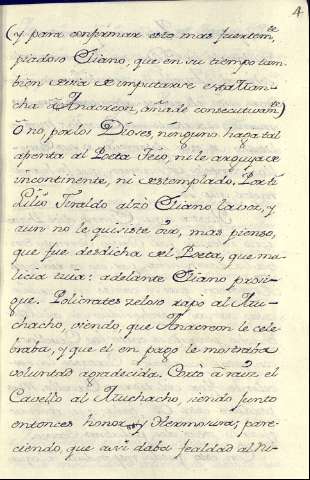 4
(y para confirmar esto mas fuertemte.
piadoso Eliano, que en su tiempo tam-
bien oìa imputarse esta Man-
cha à Anacreon, añade consecutivamte.)
O no, por los Dioses, ninguno haga tal
afrenta al Poeta Teio, ni le arguya de
incontinente, ni destemplado. Por ti
Lilio Giraldo alzò Eliano la voz, y
aun no le quisiste oir, mas pienso,
que fue desdicha del Poeta, que ma-
licia tuia: adelante Eliano prosi-
gue. Policrates zeloso rapò al Mu-
chacho, viendo, que Anacreon le cele-
braba, y que el en pago le mostraba
voluntad agradecida. Cortò à raiz el
Cavello al Muchacho, siendo junto
entonces honor, y Hermosura; pare-
ciendo, que assi daba fealdad al Ni-